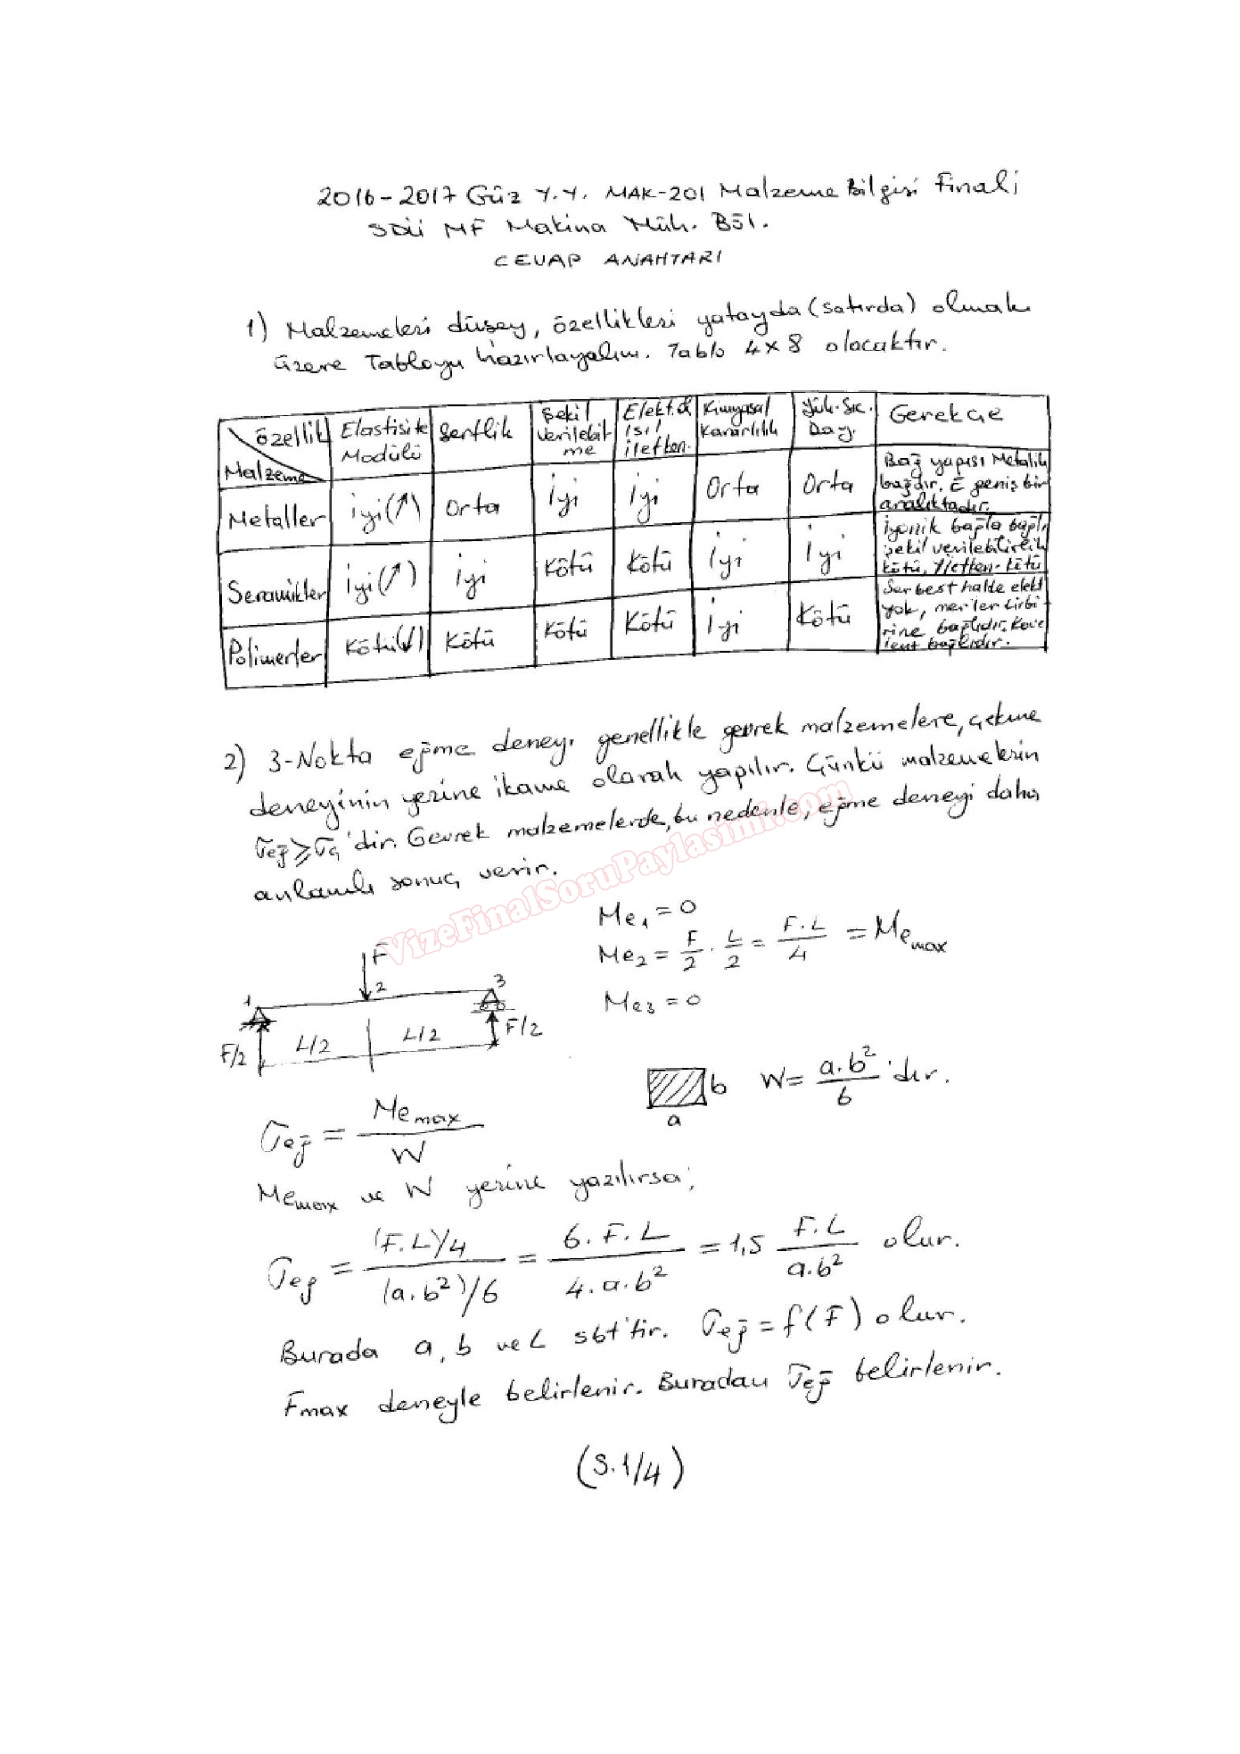 2016-2017 Güz Y.Y. MAK-201 Malzeme Bilgisi Finali
SDÜ MF Makina Müh. Böl.
CEVAP ANAHTARI
1) Malzemeleri düşey, özellikleri yatayda (satırda) olmak
üzere Tabloyu hazırlayalım. Tablo 4x8 olacaktır.
Özellik Malzeme | Elastisite Modülü | Sertlik | Şekil verilebilme | Elekt. & ısıl iletken. | Kimyasal Kararlılık | Yük. Sıc. Day. | Gerekçe
Metaller | İyi(↑) | Orta | İyi | İyi | Orta | Orta | Bağ yapısı Metalik bağdır. E geniş bir aralıktadır.
Seramikler | İyi(↑) | İyi | Kötü | Kötü | İyi | İyi | İyonik bağla bağlı şekil verilebilirlik kötü, İletken. kötü
Polimerler | Kötü(↓) | Kötü | Kötü | Kötü | İyi | Kötü | Serbest halde elekt yok, merler birbirine bağlıdır. Kovelent bağlıdır.
2) 3-Nokta eğme deneyi genellikle gevrek malzemelere, çekme
deneyinin yerine ikame olarak yapılır. Çünkü malzemelerin
σeğ ≥ σç 'dir. Gevrek malzemelerde, bu nedenle, eğme deneyi daha
anlamlı sonuç verir.
VizeFinalSoruPaylasimi.com
Me₁ = 0
Me₂ = F/2 . L/2 = F.L/4 = Me max
Me₃ = 0
F
1 2 3
F/2 L/2 L/2 F/2
b
a
W = a.b²/6 'dır.
σeğ = Me max / W
Memax ve W yerine yazılırsa;
σeğ = (F.L)/4 / (a.b²)/6 = 6.F.L / 4.a.b² = 1,5 F.L / a.b² olur.
Burada a, b ve L sbt'tir. σeğ = f(F) olur.
Fmax deneyle belirlenir. Buradan σeğ belirlenir.
(S.1/4)